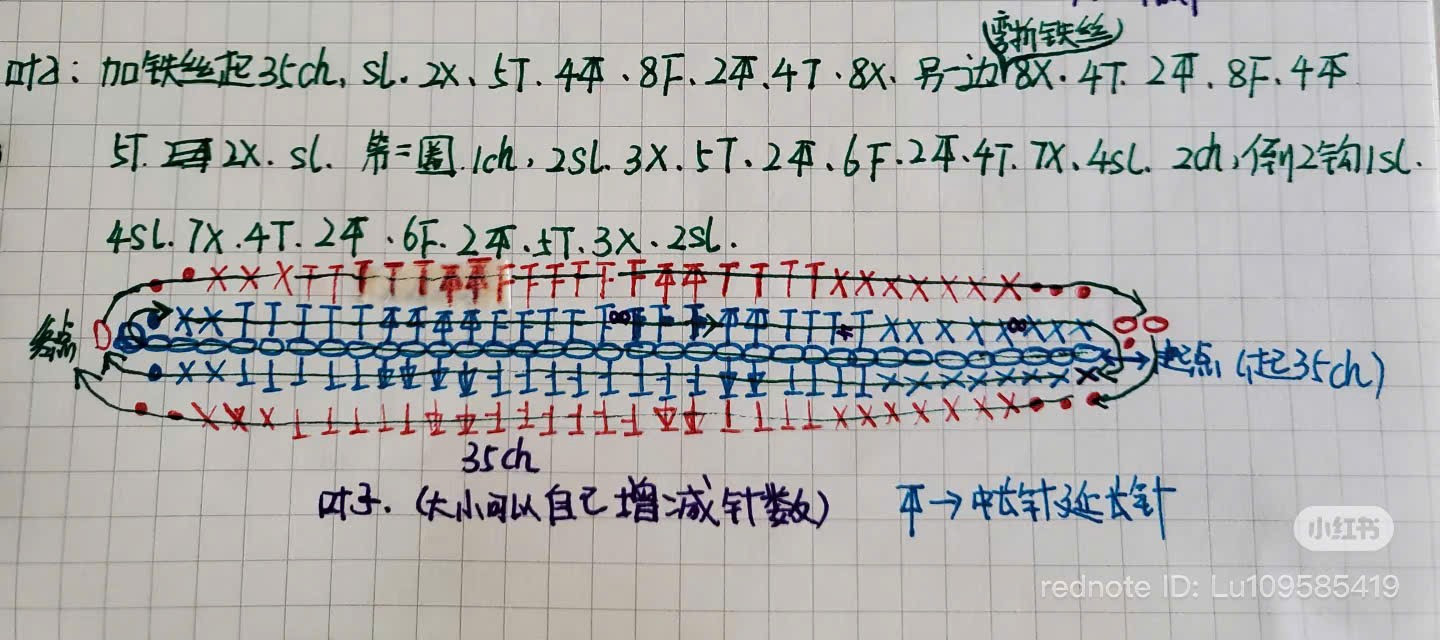 (弯折铁丝)
叶2: 加铁丝起35ch, sl. 2X、5T. 4平. 8F. 2平. 4T. 8X. 另一边8X. 4T. 2平. 8F. 4平
5T. 2X. sl. 第二圈. 1ch, 2sl. 3X. 5T. 2平. 6F. 2平. 4T. 7X. 4sl. 2ch, 倒2钩1sl.
4sl. 7X. 4T. 2平. 6F. 2平. 5T. 3X. 2sl.
终点
起点, (起35ch)
35ch
叶子. (大小可以自己增减针数)
平→中长针延长针
小红书
rednote ID: Lu109585419